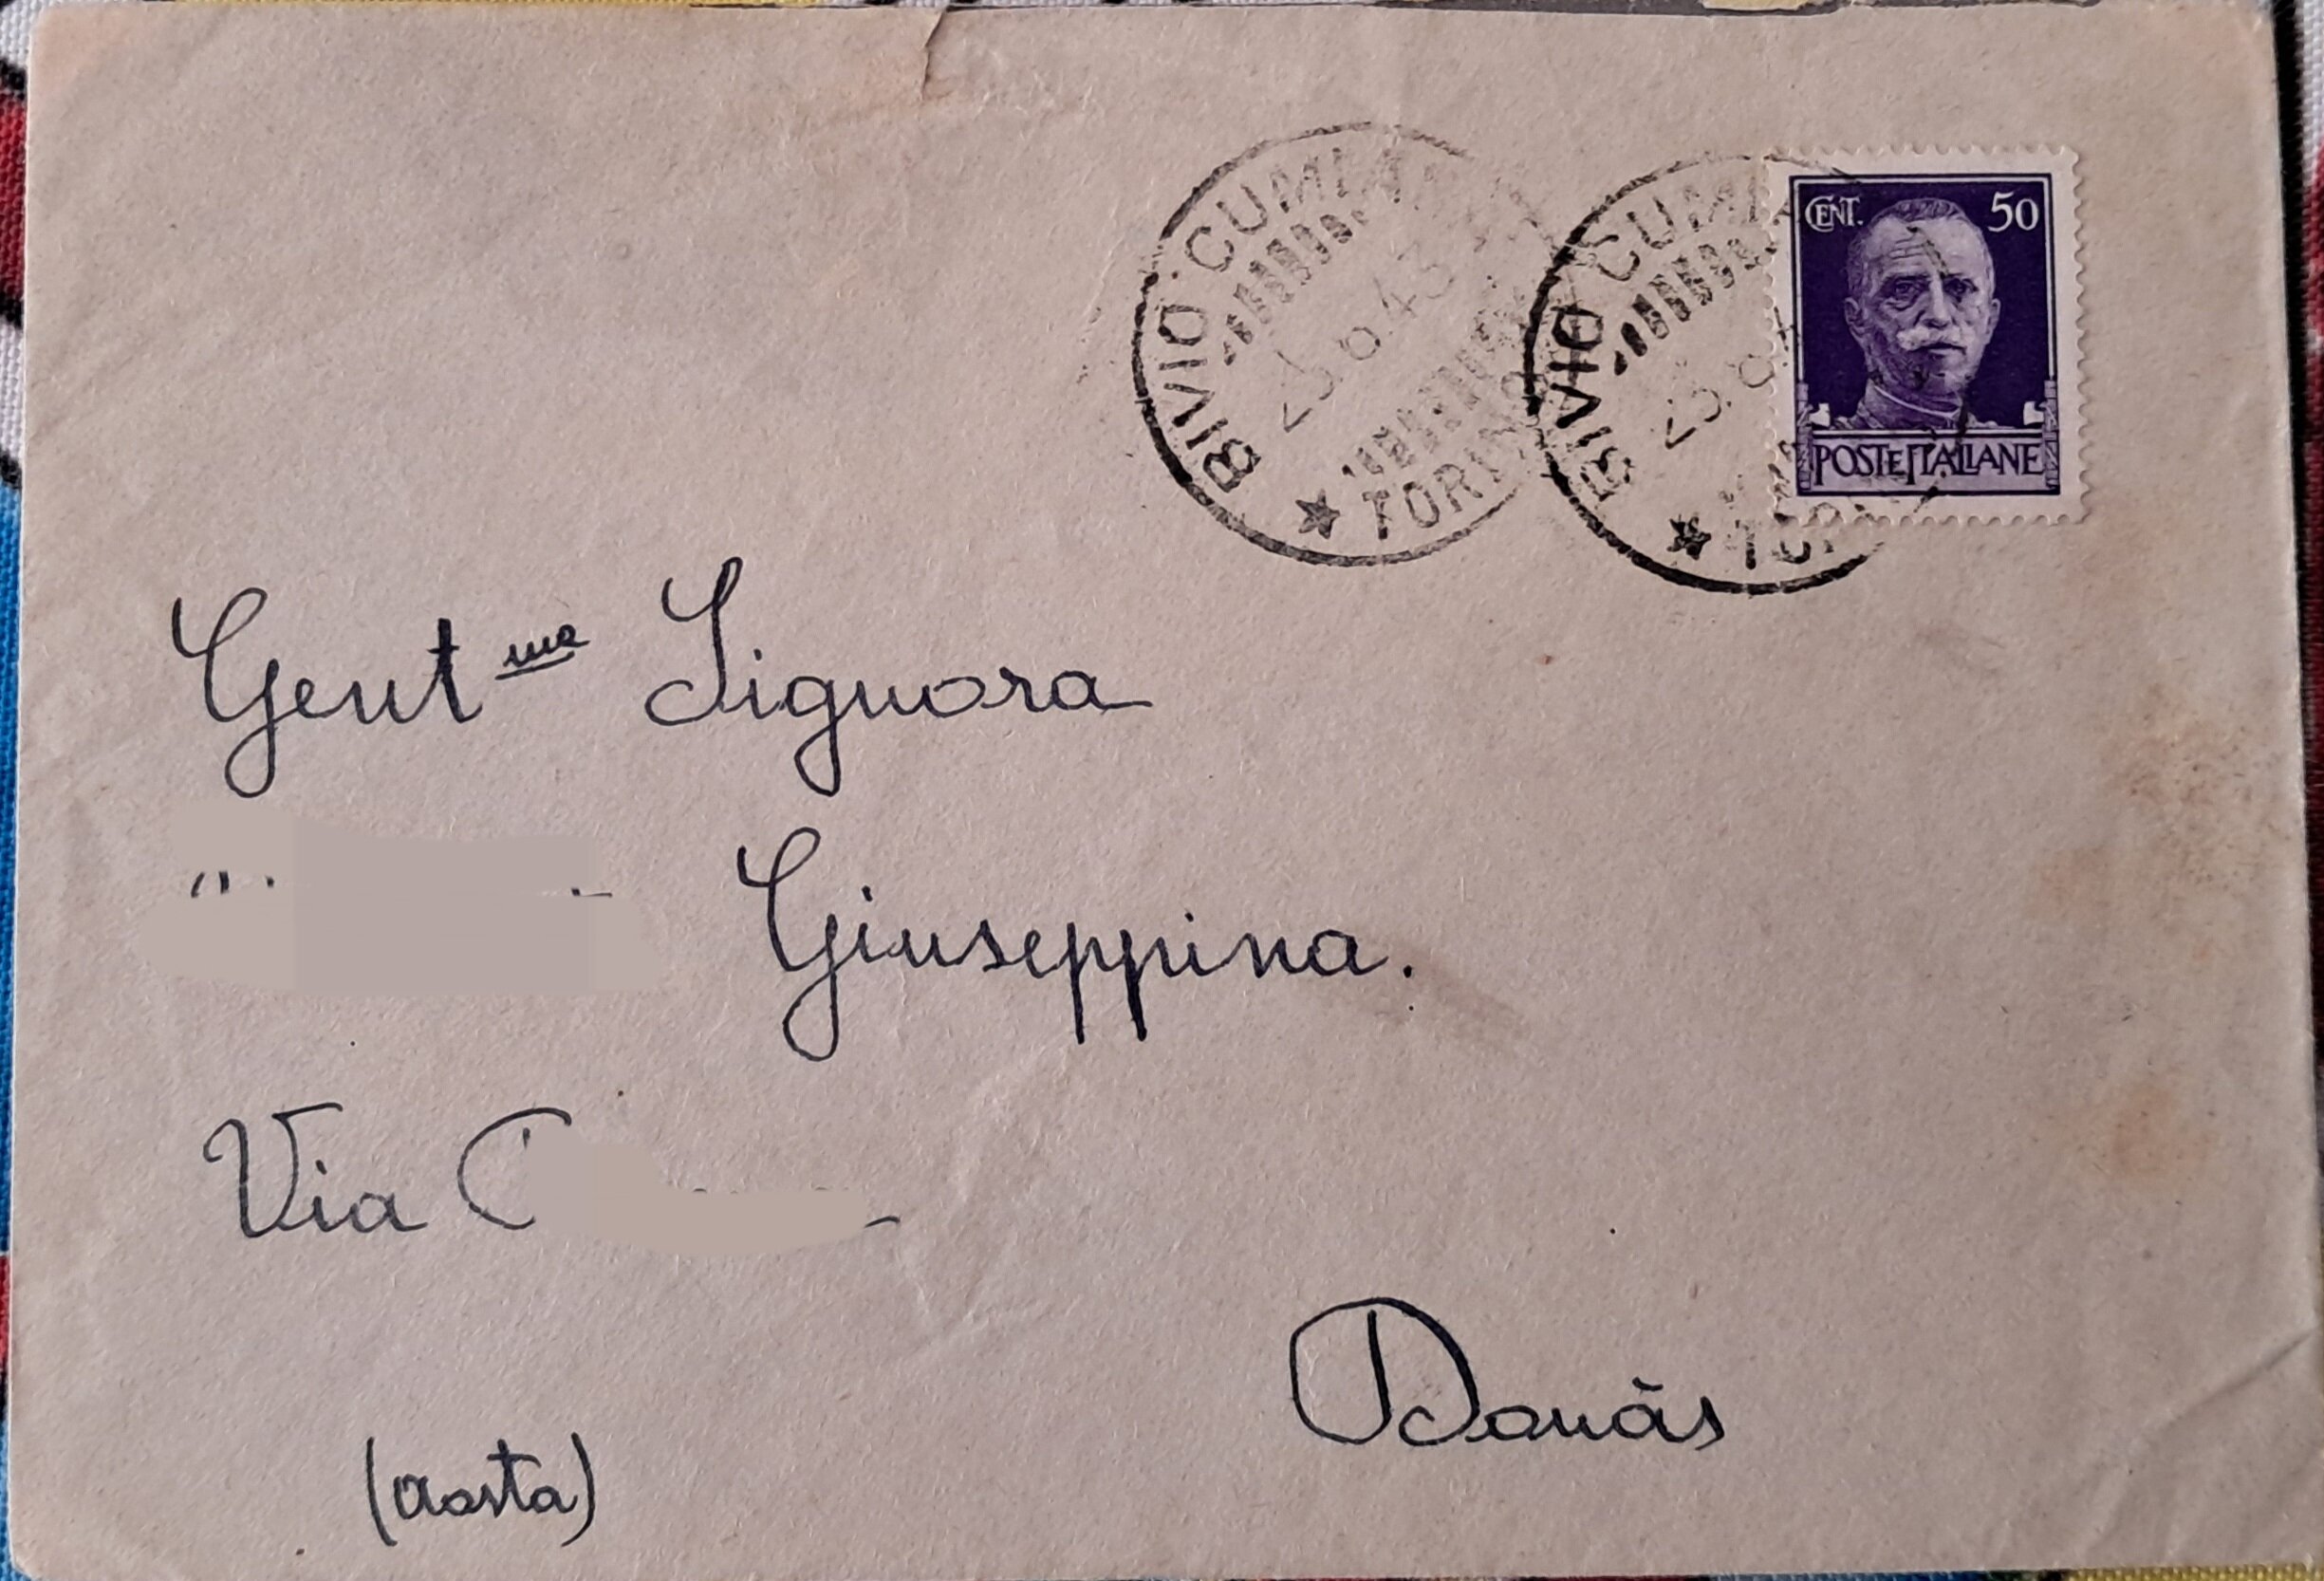 BIVIO CUMI
23.6.43
TORINO
BIVIO CUMI
CENT. 50
POSTE ITALIANE
Gent ma Signora
Giuseppina.
Via
Donàs
(Aosta)